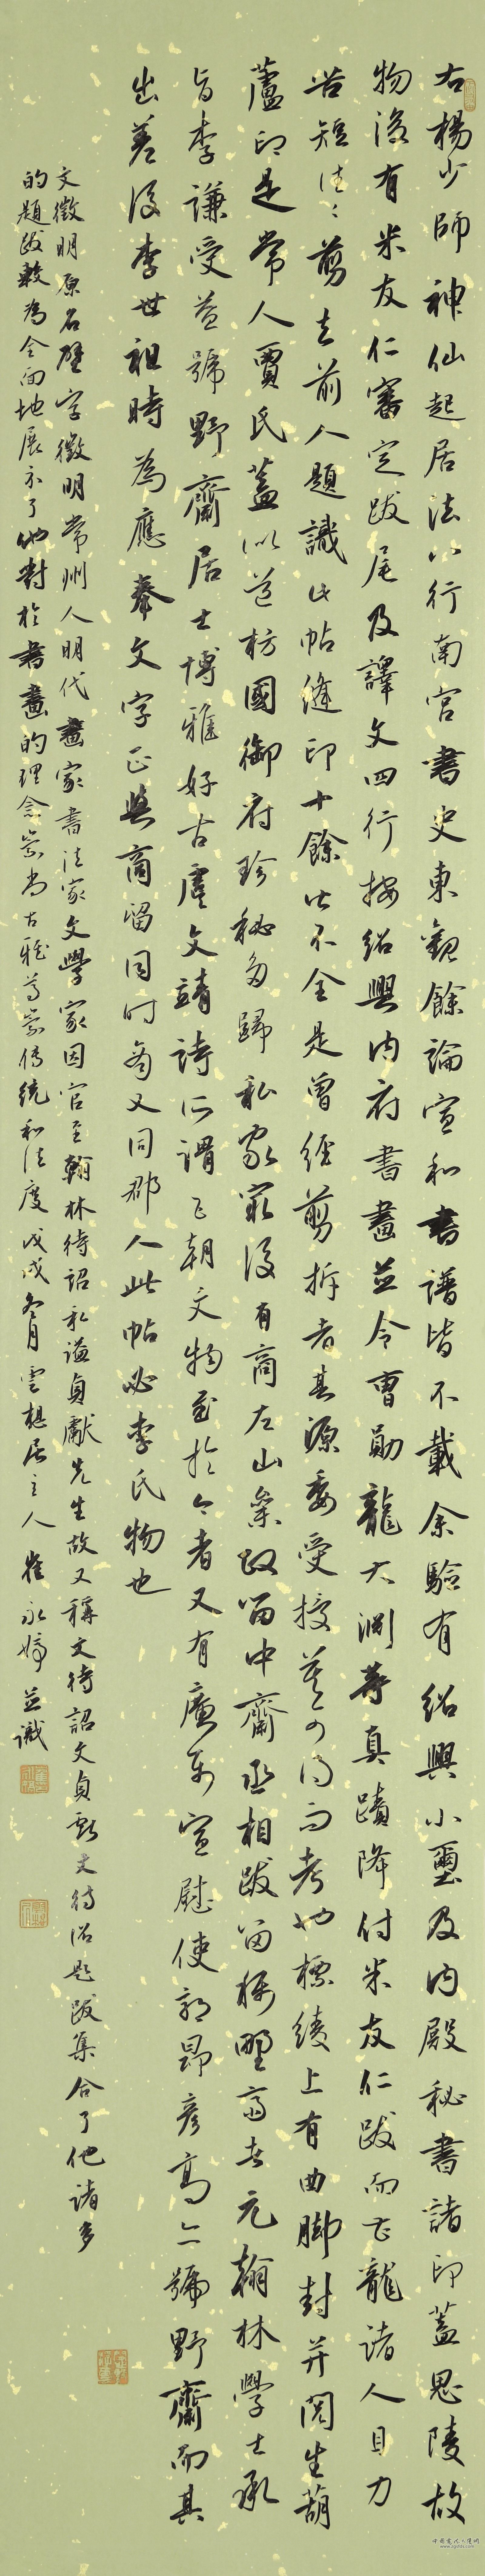 右楊少師神仙起居法八行南宮書史東觀餘論宣和書譜皆不載余驗有紹興小璽及內殿秘書諸印蓋思陵故
物後有米友仁審定跋尾及譯文四行按紹興內府書畫並令曹勛龍大淵等真蹟降付米友仁跋而曹龍諸人目力
苦短往往剪去前人題識此帖縫印十餘皆不全是曾經剪拆者其源委受授莫可得而考也標綾上有曲腳封并閱生葫
蘆印是常人賈氏蓋似道枋國御府珍秘多歸私家最後有商左山參政留中齋丞相跋留稱野齋者元翰林學士承
旨李謙受益號野齋居士博雅好古虞文靖詩所謂已朝文物至於今者又有廉希宣慰使郭昂彥高亦號野齋而其
出差後李世祖時為應奉文字正與商留同時為又同郡人此帖必李氏物也
文徵明原名壁字徵明常州人明代畫家書法家文學家因官至翰林待詔私謚貞獻先生故又稱文待詔文貞獻文待詔題跋集合了他諸多
的題跋較為全面地展示了他對於書畫的理念崇尚古雅尊崇傳統和法度戊戌冬月雲想居主人崔永婷並識
中國當代人陵網